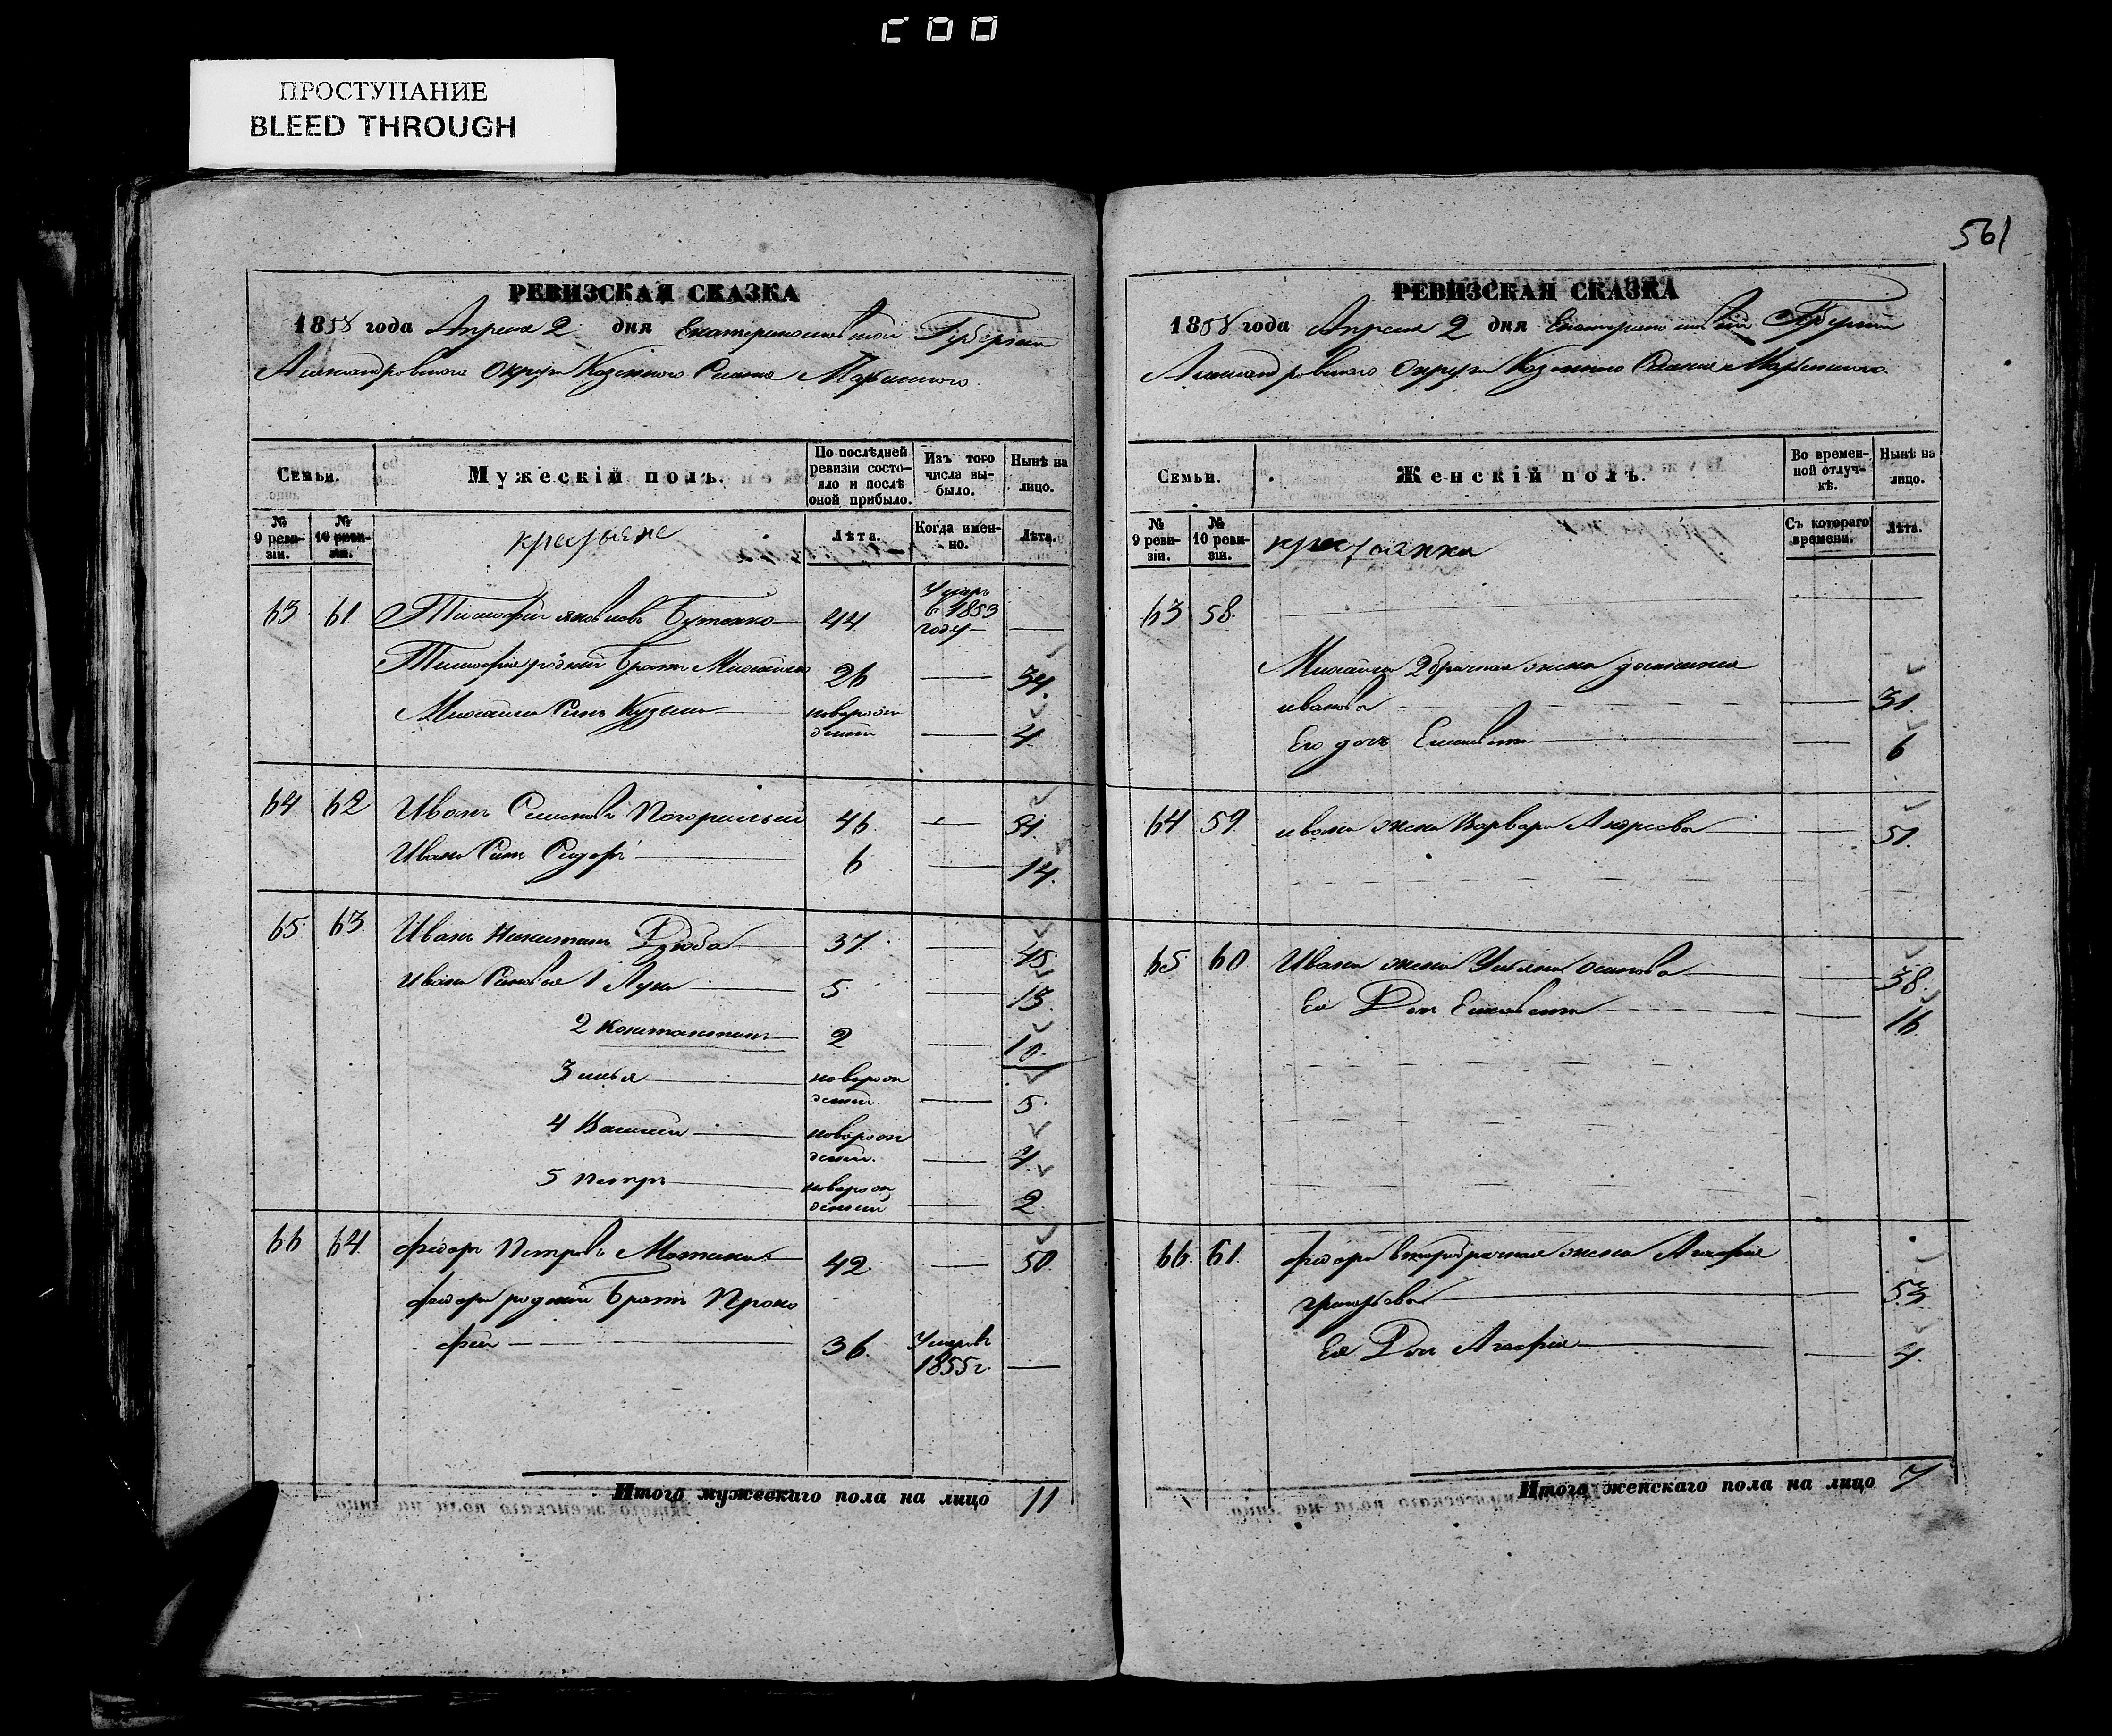 ПРОСТУПАНИЕ
BLEED THROUGH
561
РЕВИЗСКАЯ СКАЗКА
1858 года Апреля 2 дня Екатеринославской Губернии
Александровского Округа Казенного Селения Марьинского.
Семьи.
Мужескій полъ.
По послѣдней ревизіи состояло и послѣ оной прибыло.
Изъ того числа выбыло.
Нынѣ на лицо.
№ 9 ревизіи.
№ 10 ревизіи.
крестьяне
Лѣта.
Когда именно.
Лѣта.
63 61 Тимофей Яковлевъ Бутенко 44 Умеръ в 1853 году —
Тимофея родный братъ Михайло 26 — 34.
Михайлы Сынъ Кузьма новорожденный — 4
64 62 Иванъ Семеновъ Погорилый 46 — 54
Ивана Сынъ Сидоръ 6 — 14.
65 63 Иванъ Никитинъ Дзюба 37 — 45
Ивана Сыновья 1 Лука 5 — 13
2 Константинъ 2 — 10.
3 илья новорожденный — 5
4 Василий новорожденный — 4
5 Петръ новорожденный — 2
66 64 Федоръ Петровъ 42 — 50
Федора родный братъ Проко
фий 36 Умеръ в 1855 г. —
Итого мужескаго пола на лицо 11
РЕВИЗСКАЯ СКАЗКА
1858 года Апреля 2 дня Екатеринославской Губернии
Александровского Округа Казенного Селения Марьинского.
Семьи.
Женскій полъ.
Во временной отлучкѣ.
Нынѣ на лицо.
№ 9 ревизіи.
№ 10 ревизіи.
крестьянки
Съ котораго времени.
Лѣта.
63 58.
Михайлы 2 брачная жена
иванова — 31
Его дочь Елисавета — 6
64 59 ивана жена Варвара Андреева — 51.
65 60 Ивана жена Ульяна Осипова — 38.
Ея Дочь Елисавета — 16
66. 61. Федора второбрачная жена Агафия
григорьева — 53
Ея Дочь Агафия — 4.
Итого женскаго пола на лицо 7